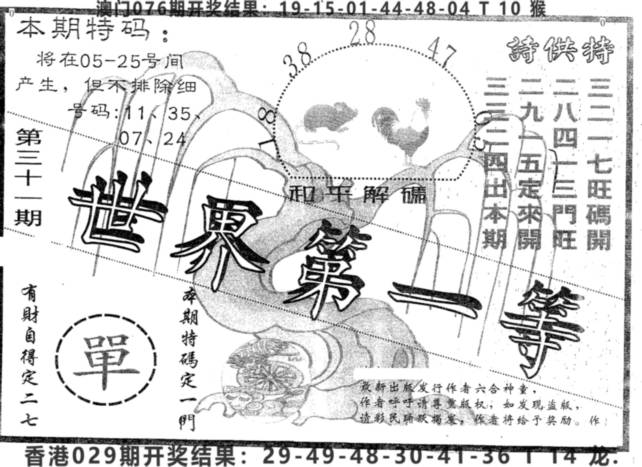 澳门076期开奖结果：19-15-01-44-48-04 T 10 猴
本期特码：
将在05-25号间
产生，但不排除细
号码:11、35、
07、24
第三十一期
18
38
28
47
03
和平解碼
詩供特
三二一七旺碼開
二八四一三門旺
二九一五定來開
三三二四出本期
世界第一等
有財自得定二七
單
本期特碼定一門
最新出版发行作者六合神童，
作者呼呼请尊重版权，如发现盗版，
请彩民踊跃揭发，作者将给予奖励。作
香港029期开奖结果：29-49-48-30-41-36 T 14 龙.